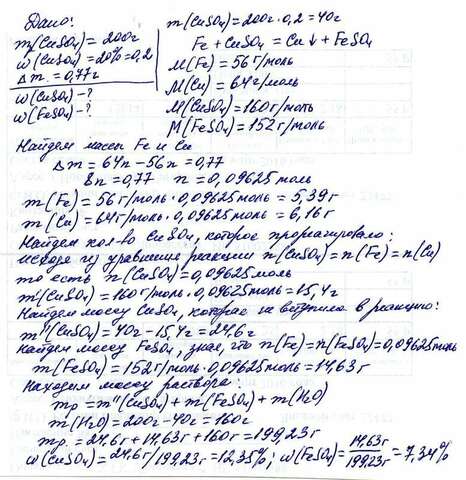 Дано:
m(CuSO₄) = 200г
ω(CuSO₄) = 20% = 0,2
Δm = 0,77г
ω(CuSO₄) - ?
ω(FeSO₄) - ?
m(CuSO₄) = 200г · 0,2 = 40г
Fe + CuSO₄ = Cu↓ + FeSO₄
M(Fe) = 56 г/моль
M(Cu) = 64 г/моль
M(CuSO₄) = 160 г/моль
M(FeSO₄) = 152 г/моль
Найдем массы Fe и Cu
Δm = 64n - 56n = 0,77
8n = 0,77 n = 0,09625 моль
m(Fe) = 56 г/моль · 0,09625 моль = 5,39 г
m(Cu) = 64 г/моль · 0,09625 моль = 6,16 г
Найдем кол-во CuSO₄, которое прореагировало:
исходя из уравнения реакции n(CuSO₄) = n(Fe) = n(Cu)
то есть n(CuSO₄) = 0,09625 моль
m'(CuSO₄) = 160 г/моль · 0,09625 моль = 15,4 г
Найдем массу CuSO₄, которая не вступила в реакцию:
m"(CuSO₄) = 40г - 15,4г = 24,6г
Найдем массу FeSO₄, зная, что n(Fe) = n(FeSO₄) = 0,09625 моль
m(FeSO₄) = 152 г/моль · 0,09625 моль = 14,63 г
Находим массу раствора:
mр = m"(CuSO₄) + m(FeSO₄) + m(H₂O)
m(H₂O) = 200г - 40г = 160г
mр. = 24,6г + 14,63г + 160г = 199,23г
ω(CuSO₄) = 24,6г / 199,23г = 12,35%; ω(FeSO₄) = 14,63г / 199,23г = 7,34%